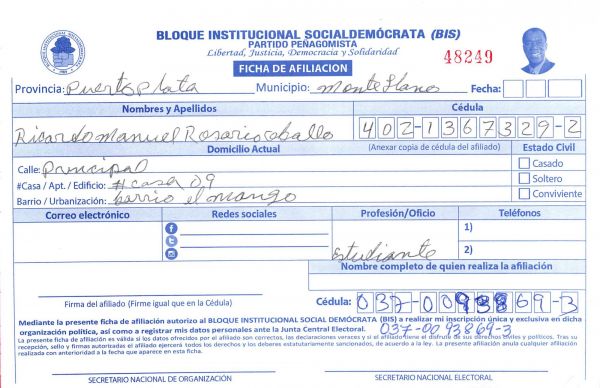 BLOQUE INSTITUCIONAL SOCIALDEMÓCRATA (BIS)
PARTIDO PEÑAGOMISTA
Libertad, Justicia, Democracia y Solidaridad
48249
FICHA DE AFILIACION
Provincia: Puerto Plata Municipio: Monte Llano Fecha:
Nombres y Apellidos Cédula
Ricardo Manuel Rosario ceballo 402-1367329-2
Domicilio Actual (Anexar copia de cédula del afiliado) Estado Civil
Calle: Principal Casado
#Casa / Apt. / Edificio: #casa 09 Soltero
Barrio / Urbanización: barrio el mango Conviviente
Correo electrónico Redes sociales Profesión/Oficio Teléfonos
1)
estudiante 2)
Nombre completo de quien realiza la afiliación
Firma del afiliado (Firme igual que en la Cédula) Cédula: 037-0093869-3
Mediante la presente ficha de afiliación autorizo al BLOQUE INSTITUCIONAL SOCIAL DEMÓCRATA (BIS) a realizar mi inscripción única y exclusiva en dicha
organización política, así como a registrar mis datos personales ante la Junta Central Electoral. 037-0093869-3
La presente ficha de afiliación es válida si los datos ofrecidos por el afiliado son correctos, las declaraciones veraces y si el afiliado tiene el disfrute de sus derechos civiles y políticos. Tras su
recepción, sello y firmas autorizadas el afiliado ejercerá todos los derechos y los deberes estatutariamente sancionados, de acuerdo a la ley. La presente afiliación anula cualquier afiliación
realizada con anterioridad a la fecha que aparece en esta ficha.
SECRETARIO NACIONAL DE ORGANIZACIÓN SECRETARIO NACIONAL ELECTORAL